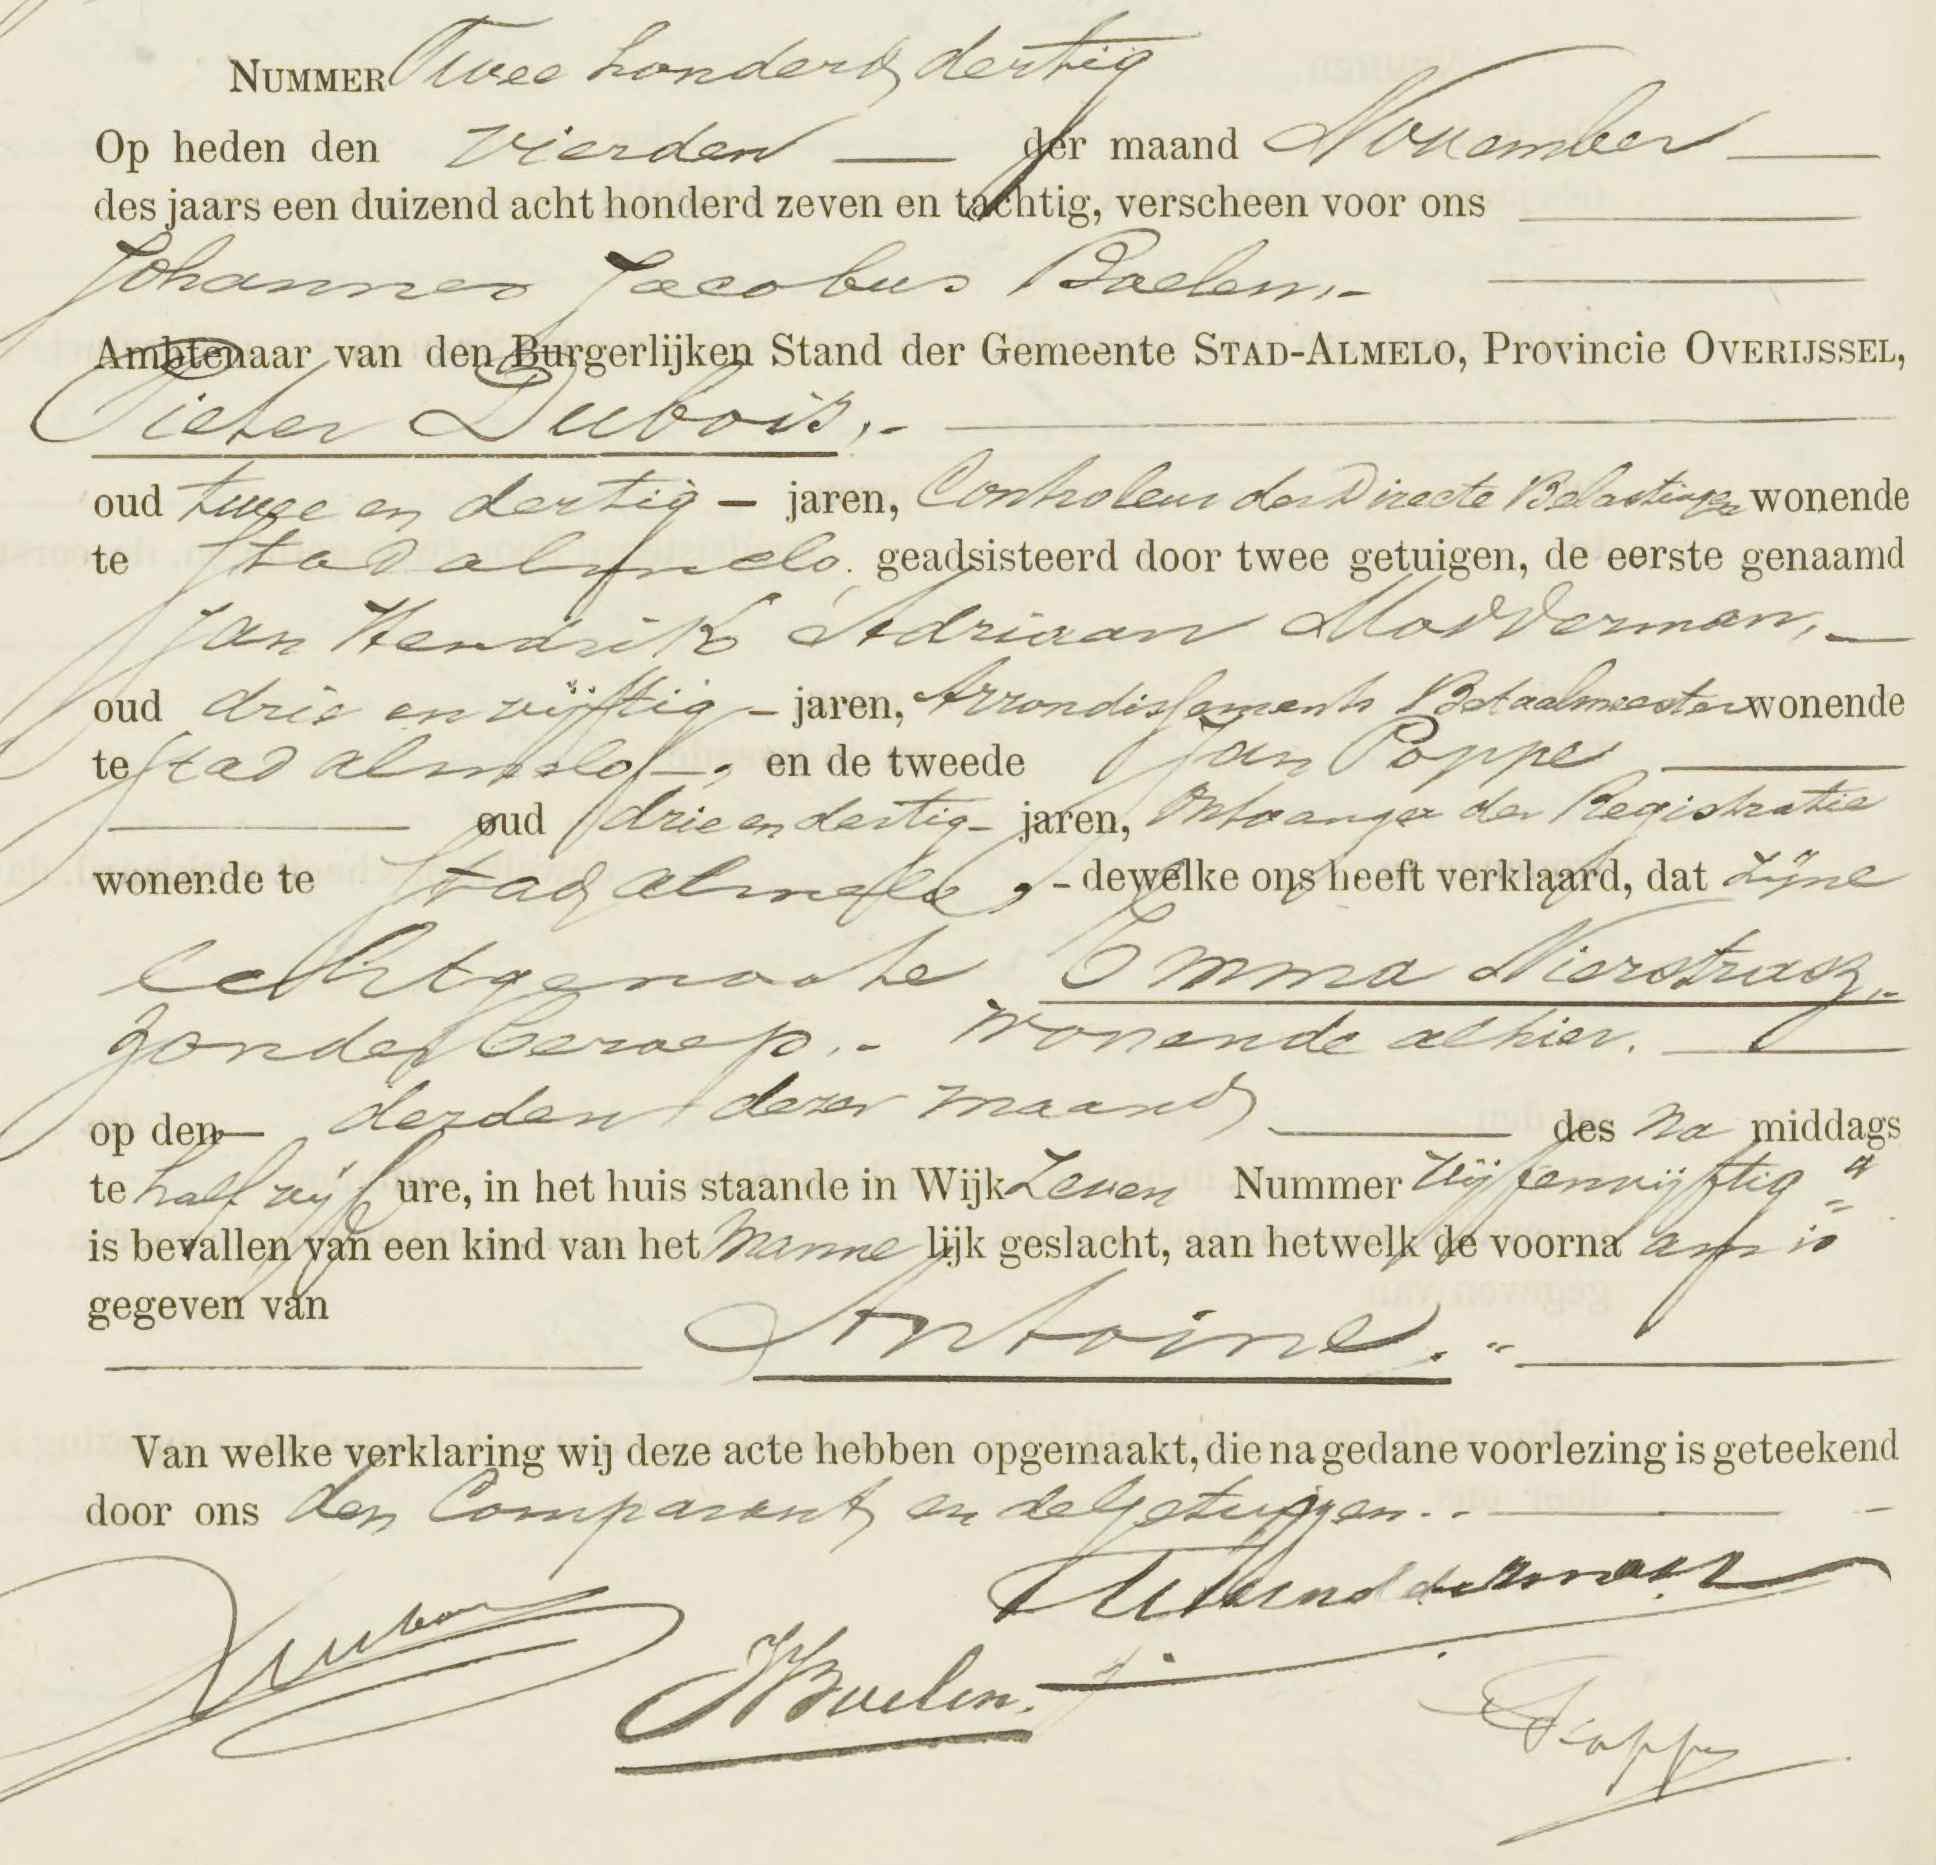 NUMMER Twee honderd dertig
Op heden den vierden — der maand November —
des jaars een duizend acht honderd zeven en tachtig, verscheen voor ons
Johannes Jacobus Boelen,-
Ambtenaar van den Burgerlijken Stand der Gemeente STAD-ALMELO, Provincie OVERIJSSEL,
Pieter Dubois,-
oud twee en dertig — jaren, Controleur der Directe Belastingen wonende
te Stad almelo, geadsisteerd door twee getuigen, de eerste genaamd
Jan Hendrik Adriaan Modderman,-
oud drie en vijftig - jaren, Arrondissements Betaalmeester wonende
te Stad almelo -, en de tweede Jan Poppe
oud drie en dertig - jaren, Ontvanger der Registratie
wonende te Stad almelo, - dewelke ons heeft verklaard, dat zijne
echtgenoote Emma Nierstrasz,-
zonder beroep,- wonende alhier.
op den — derden dezer maand — des na middags
te half vijf ure, in het huis staande in Wijk Zeven Nummer vijf en vijftig "
is bevallen van een kind van het manne lijk geslacht, aan hetwelk de voorna am is
gegeven van
Antoine. "
Van welke verklaring wij deze acte hebben opgemaakt, die na gedane voorlezing is geteekend
door ons den Comparant en de getuigen.-
Dubois
JHA Modderman
JJBoelen.
JPoppe